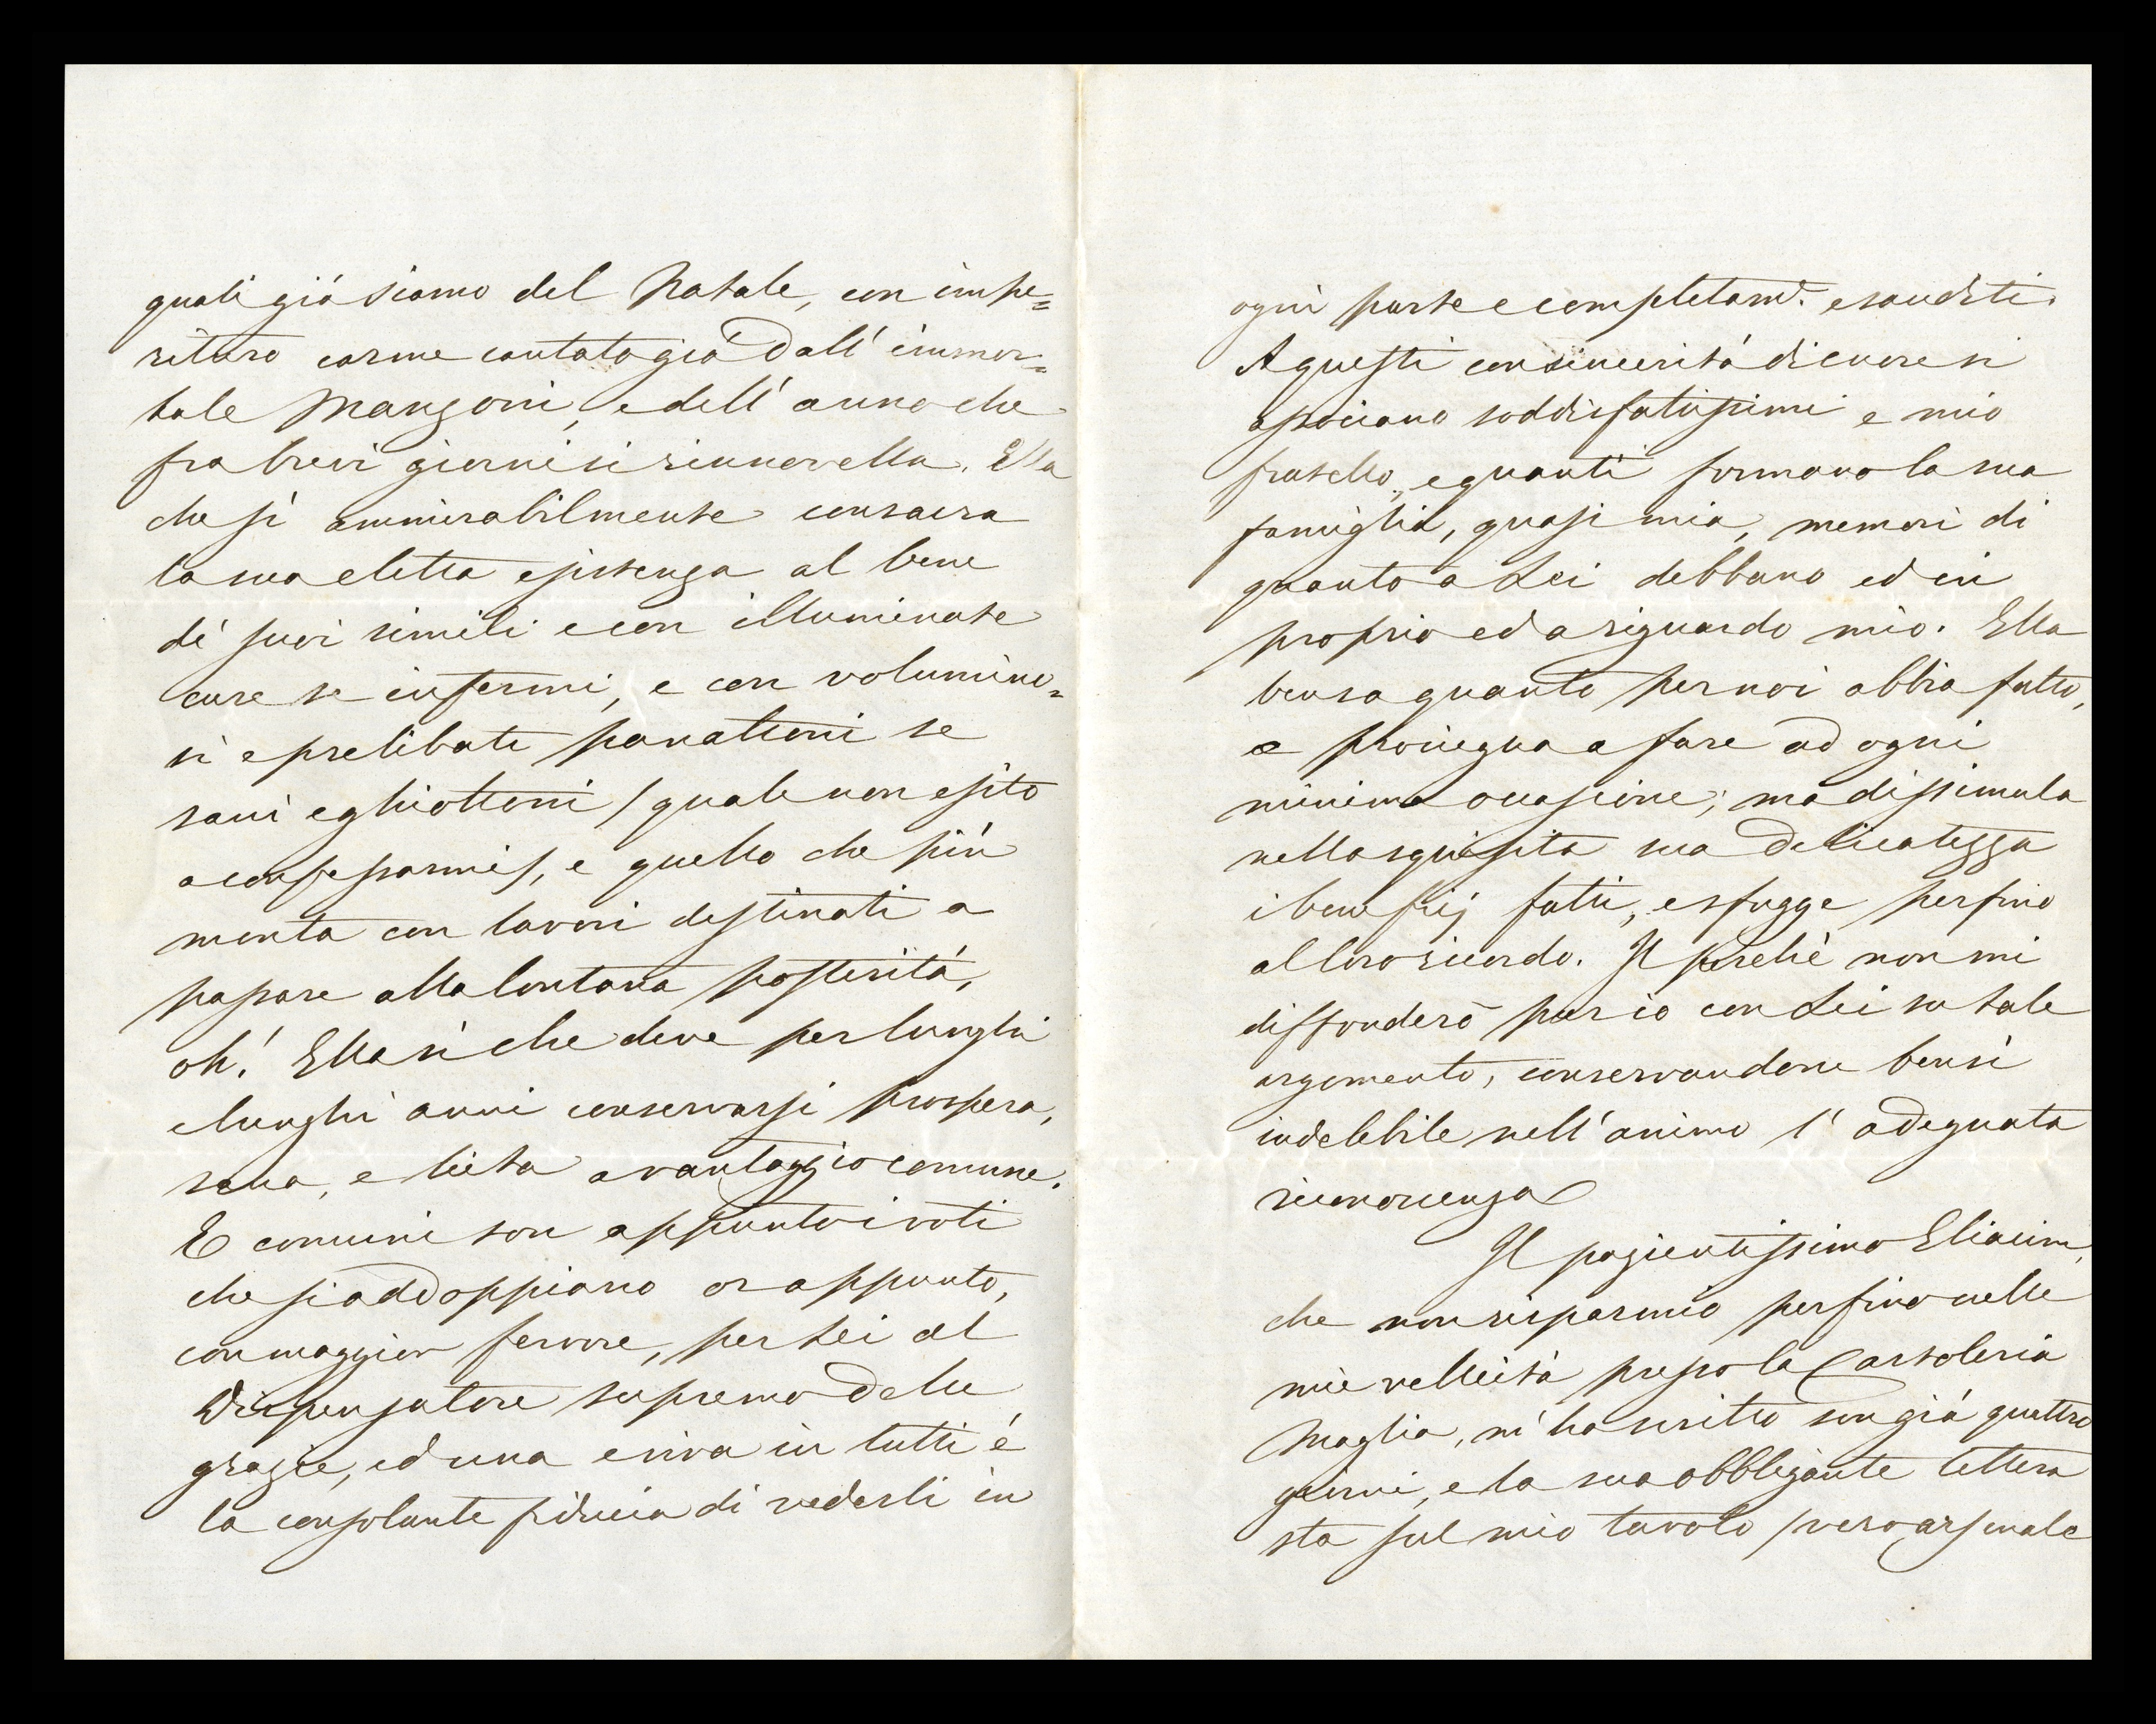 quali già siamo del Natale, con impe=
rituro carme cantato già dall' immor=
tale Manzoni, e dell' anno che
fra brevi giorni si rinnovella. Ella
che sì ammirabilmente consacra
la sua eletta esistenza al bene
dè suoi simili e con illuminate
cure se infermi, e con volumino=
si e prelibati panattoni se
sani e ghiottoni / quale non esito
a confessarmi /, e quello che più
monta con lavori destinati a
passare alla lontana posterità,
oh! Ella sì che deve per lunghi
e lunghi anni conservarsi prospera,
sana, e lieta a vantaggio comune.
E comuni son appunto i voti
che si addoppiano or appunto,
con maggior fervore, per Lei al
Dispensatore supremo delle
grazie, ed una e viva in tutti è
la consolante fiducia di vederli in
ogni parte e completamᵉ. esauditi.
A questi con sincerità di cuore si
associano soddisfatissimi e mio
fratello, e quanti formano la sua
famiglia, quasi mia, memori di
quanto a Lei debbano ed in
proprio ed a riguardo mio. Ella
bensa quanto per noi abbia fatto,
e prosiegua a fare ad ogni
minima occasione; ma dissimula
nella squisita sua delicatezza
i beneficj fatti, e sfugge perfino
al loro ricordo. Il perchè non mi
diffonderò pur io con Lei su tale
argomento, conservandone bensì
indelebile nell' animo l' adeguata
riconoscenza
Il pazientissimo Eliacim,
che non risparmio perfino nelle
mie velleità presso la Cartoleria
Maglia, m' ha scritto son già quattro
giorni, e la sua obbligante lettera
sta sul mio tavolo / vero arsenale